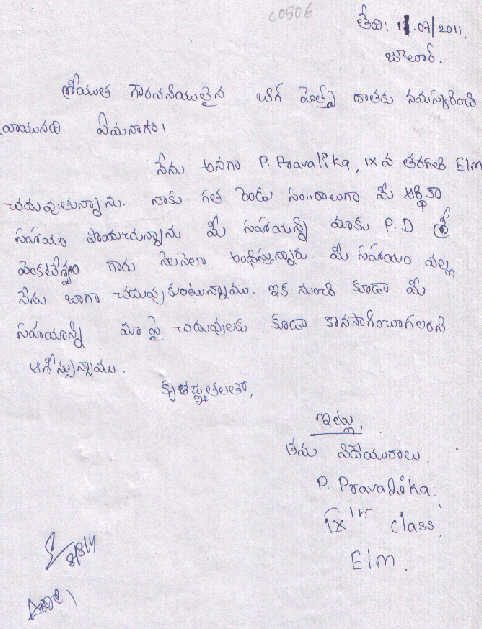 c0506
తేది: 11.07/2011.
ఏలూరు.
శ్రీయుత గౌరవనీయులైన బిగ్ హెల్ప్ దాతకు నమస్కరించి
వ్రాయునది ఏమనగా!
నేను అనగా P. Pravalika, IX వ తరగతి Elm
చదువుతున్నాను. నాకు గత రెండు సం॥రాలుగా మీ ఆర్థిక
సహాయం పొందుచున్నాను మీ సహాయాన్ని మాకు P.D శ్రీ
వెంకటేశ్వర్లు గారు నెలనెలా అందిస్తున్నారు మీ సహాయం వల్ల
నేను బాగా చదువుకుంటున్నాము. ఇక నుంచి కూడా మీ
సహాయాన్ని మా పై చదువులకు కూడా కొనసాగించగలరని
ఆశిస్తున్నాము.
కృతజ్ఞతలతో,
ఇట్లు,
తమ విధేయురాలు
P. Pravalika.
IX th class
Elm.
8/8/11